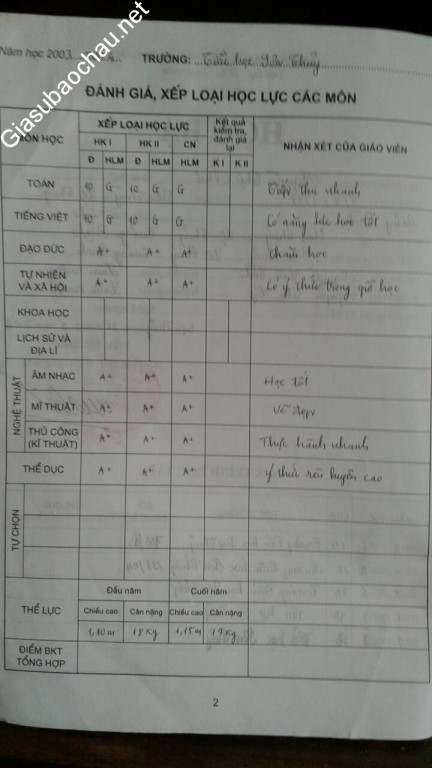 Giasubaochau.net
Năm học 2003 TRƯỜNG: Tiểu học Sơn Thủy
ĐÁNH GIÁ, XẾP LOẠI HỌC LỰC CÁC MÔN
MÔN HỌC XẾP LOẠI HỌC LỰC Kết quả kiểm tra, đánh giá lại NHẬN XÉT CỦA GIÁO VIÊN
HK I HK II CN
Đ HLM Đ HLM HLM K I K II
TOÁN 10 G 10 G G Tiếp thu nhanh
TIẾNG VIỆT 10 G 10 G G Có năng lực học tốt
ĐẠO ĐỨC A+ A+ A+ chăm học
TỰ NHIÊN VÀ XÃ HỘI A+ A+ A+ Có ý thức trong giờ học
KHOA HỌC
LỊCH SỬ VÀ ĐỊA LÍ
NGHỆ THUẬT
ÂM NHẠC A+ A+ A+ Học tốt
MĨ THUẬT A+ A+ A+ Vẽ đẹp
THỦ CÔNG (KĨ THUẬT) A+ A+ A+ Thực hành nhanh
THỂ DỤC A+ A+ A+ ý thức rèn luyện cao
TỰ CHỌN
THỂ LỰC
Đầu năm Cuối năm
Chiều cao Cân nặng Chiều cao Cân nặng
1,10m 18kg 1,15m 19kg
ĐIỂM BKT TỔNG HỢP
2